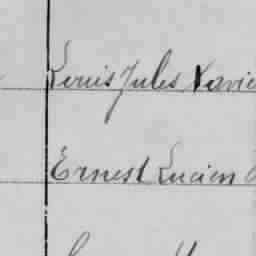 Louis Jules Xavie
Ernest Lucien